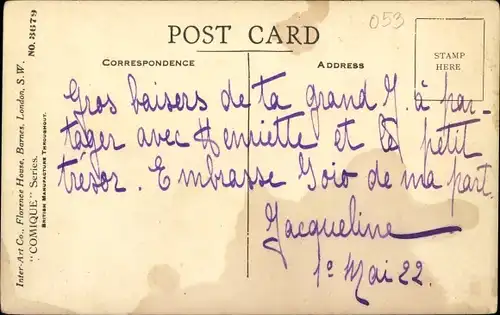 053
POST CARD
CORRESPONDENCE
ADDRESS
STAMP
HERE
Gros baisers de ta grand J. à par-
tager avec Henriette et le petit
trésor. Embrasse Goio de ma part.
Jacqueline
1º Mai 22.
Inter-Art Co., Florence House, Barnes, London, S.W.
"COMIQUE" Series. NO. 3679
BRITISH MANUFACTURE THROUGHOUT.